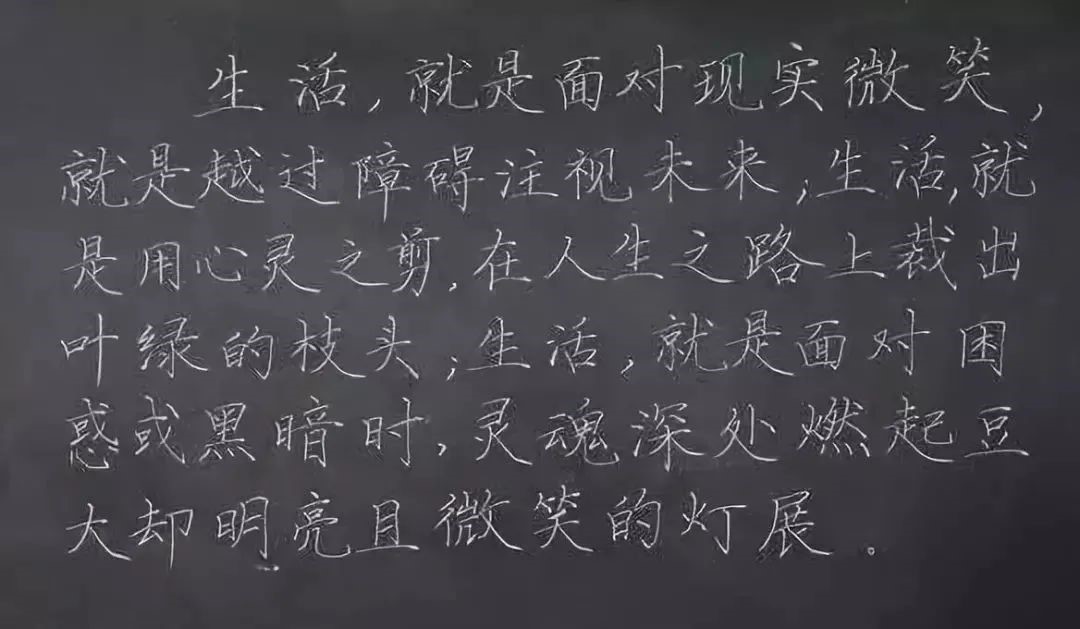 生活,就是面对现实微笑,
就是越过障碍注视未来;生活,就
是用心灵之剪,在人生之路上裁出
叶绿的枝头;生活,就是面对困
惑或黑暗时,灵魂深处燃起豆
大却明亮且微笑的灯展。